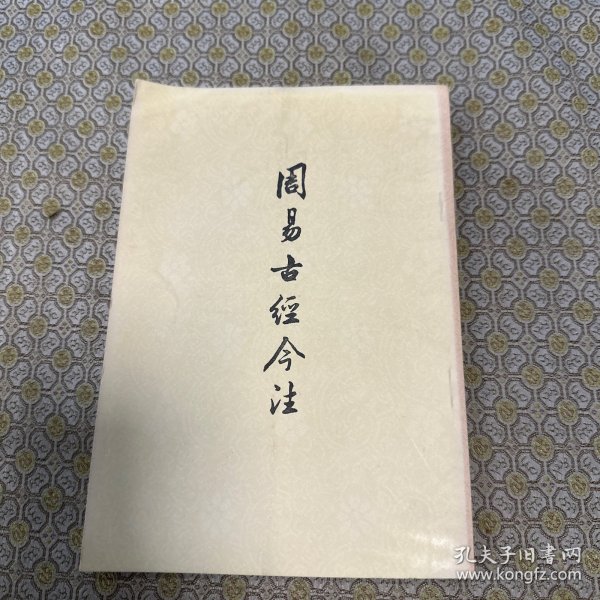 周易古經今注
孔夫子旧書网
www.kongfz.com